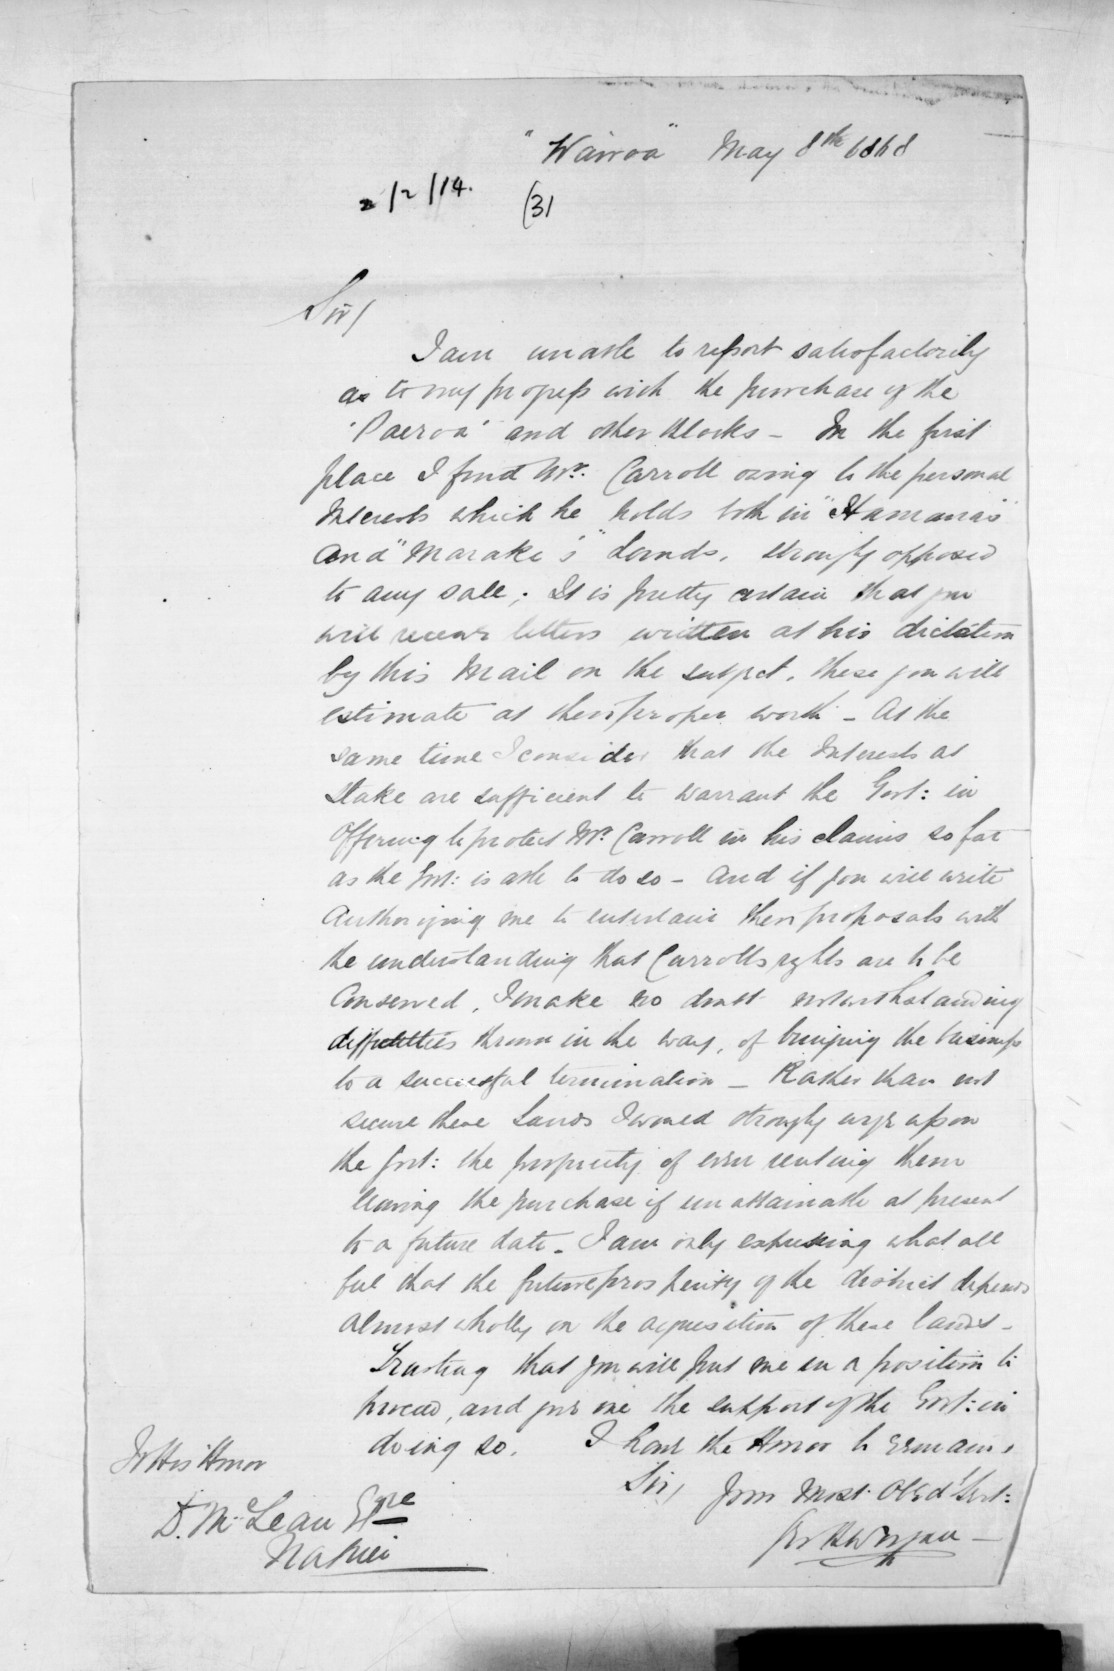 "Wairoa" May 8th 1868
2/2/14. (31
Sir/
I am unable to report satisfactorily
as to my progress with the purchase of the
"Paeroa" and other Blocks - In the first
place I find Mr. Carroll owing to the personal
Interests which he holds both in "Hamana's"
and "Marake's" Lands, strongly opposed
to any sale; It is pretty certain that you
will receive letters written at his dictation
by this Mail on the subject, these you will
estimate at their proper worth - At the
same time I consider that the Interests at
Stake are sufficient to warrant the Govt: in
Offering to protect Mr. Carroll in his claims so far
as the Govt: is able to do so - And if you will write
Authorizing me to entertain their proposals with
the understanding that Carrolls rights are to be
Conserved, I make no doubt notwithstanding
difficulties thrown in the way, of bringing the business
to a successful termination - Rather than not
secure these Lands I would strongly urge upon
the Govt: the propriety of even renting them
leaving the purchase if unattainable at present
to a future date. I am only expressing what all
feel that the future prosperity of the district depends
almost wholly on the acquisition of these lands -
Trusting that you will put me in a position to
proceed, and give me the support of the Govt: in
doing so. I have the Honor to remain,
Sir, Your Most Obed Servt:
To His Honor
D. McLean Esqre
Napier